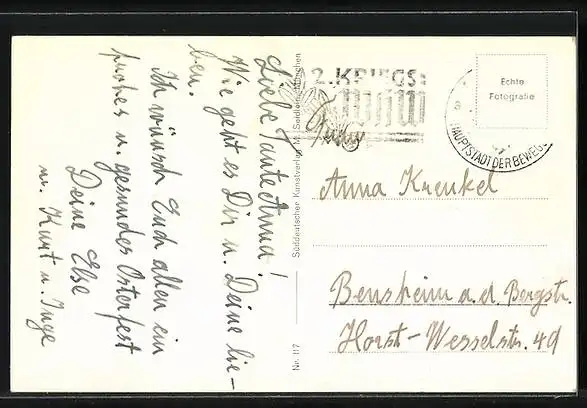 Liebe Tante Anna!
Wie geht es Dir u. Deine lie-
ben.
Ich wünsch Euch allen ein
frohes u. gesundes Osterfest
Deine Else
u. Kurt u. Inge
Süddeutscher Kunstverlag M. Seidlein, München
Nr. 117
2. KRIEGS-
WHW
HAUPTSTADT DER BEWEG
Echte
Fotografie
Anna Krenkel
Bensheim a.d. Bergstr.
Horst-Wesselstr. 49